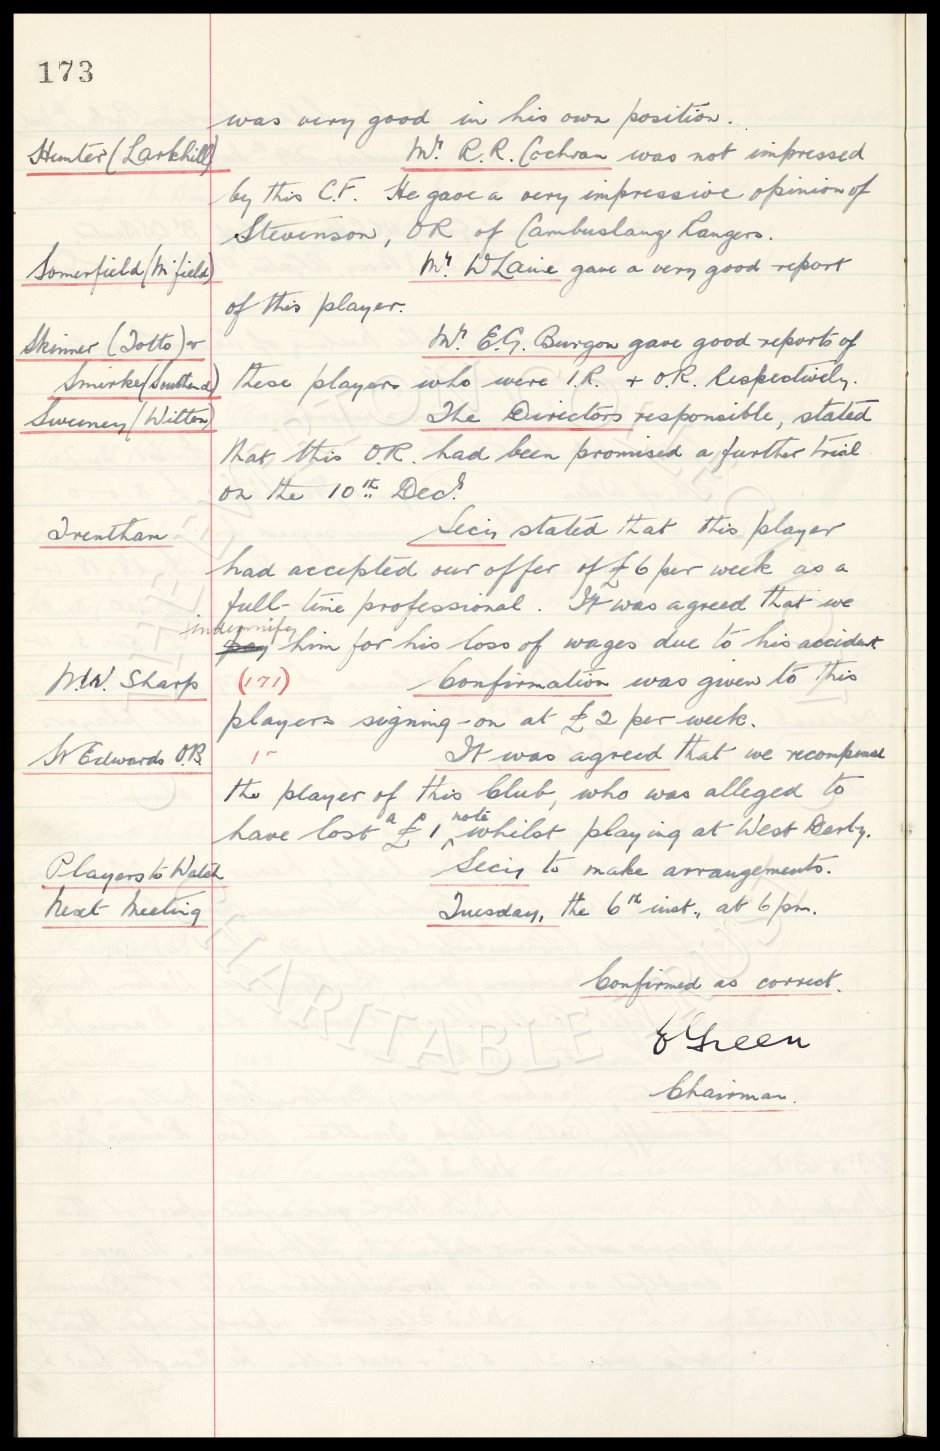 173
was very good in his own position.
Hunter (Larkhill) Mr. R.R. Cochran was not impressed
by this C.F. He gave a very impressive opinion of
Stevenson, OR of Cambuslang Rangers.
Somerfield (M'field) Mr. W Laine gave a very good report
of this player.
Skinner (Totts) or Mr. E.G. Burgon gave good reports of
Smirke (Southend) these players who were I.R. + O.R. Respectively.
Sweeney (Witton) The Directors responsible, stated
that this O.R. had been promised a further trial
on the 10th Decr.
Trentham Secy stated that this player
had accepted our offer of £6 per week as a
full-time professional. It was agreed that we
indemnify
pay him for his loss of wages due to his accident
N.W. Sharp (171) Confirmation was given to this
players signing-on at £2 per week.
St Edwards O.B. 1- It was agreed that we recompense
the player of this Club, who was alleged to
have lost a £1, note whilst playing at West Derby.
Players to Watch Secy to make arrangements.
Next Meeting Tuesday, the 6th inst., at 6 pm.
Confirmed as correct.
E Green
Chairman.
CHARITABLE TRUST